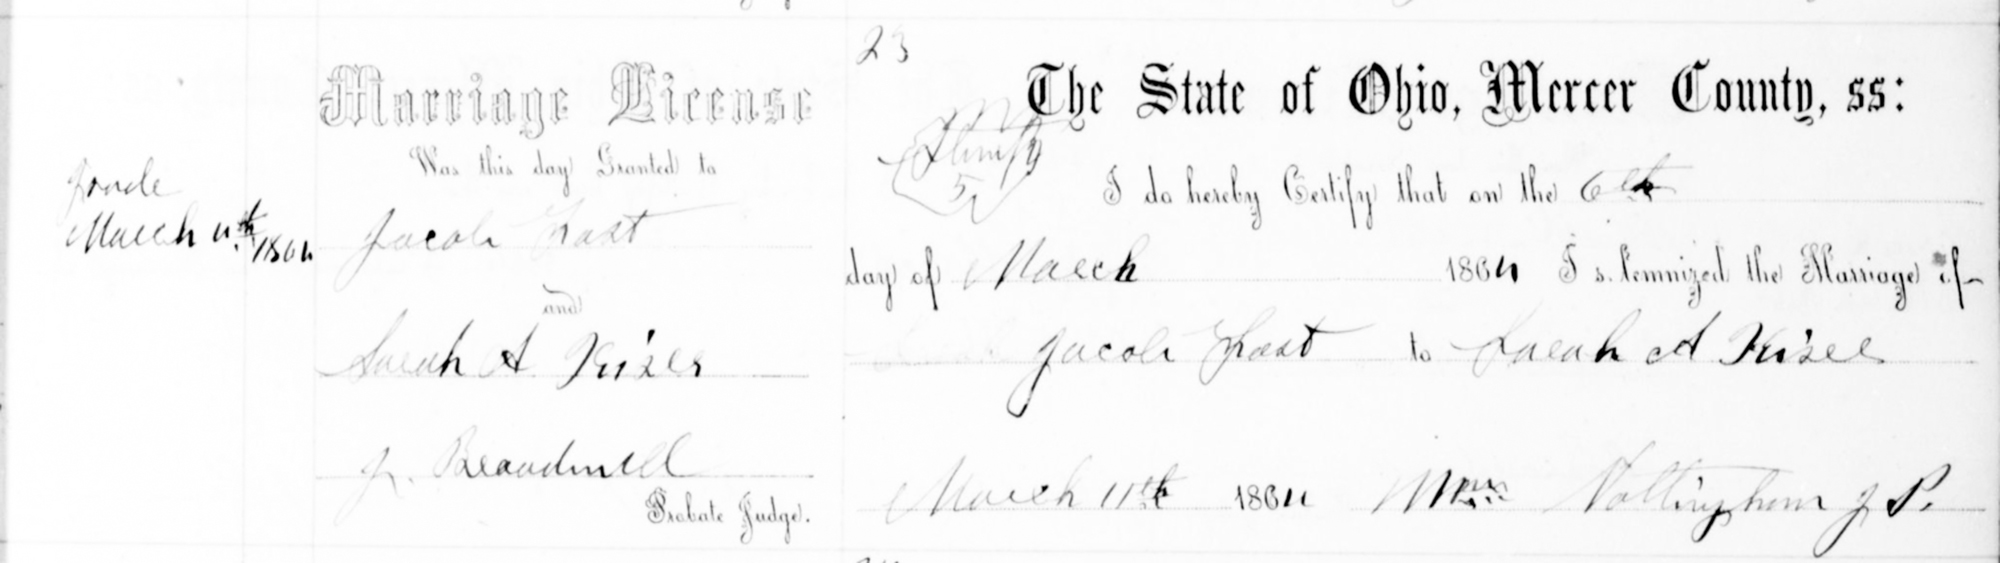 23
Marriage License
Was this day Granted to
March 4th 1864
Jacob Frast
and
Sarah A. Kiser
J. Beaudmill
Probate Judge.
The State of Ohio, Mercer County, ss:
5
I do hereby Certify that on the 6th
day of March 1864 I solemnized the Marriage of
Jacob Frast to Sarah A Kiser
March 11th 1864 Wm Nottingham J P.